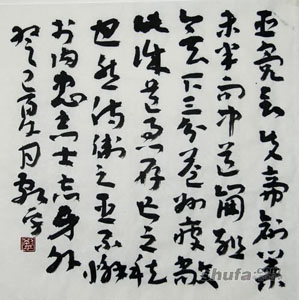 臣亮言先帝創業
未半而中道崩殂
今天下三分益州疲敝
此誠危急存亡之秋
也然侍衛之臣不懈
於內忠志士忘身外
癸巳夏月
shufa